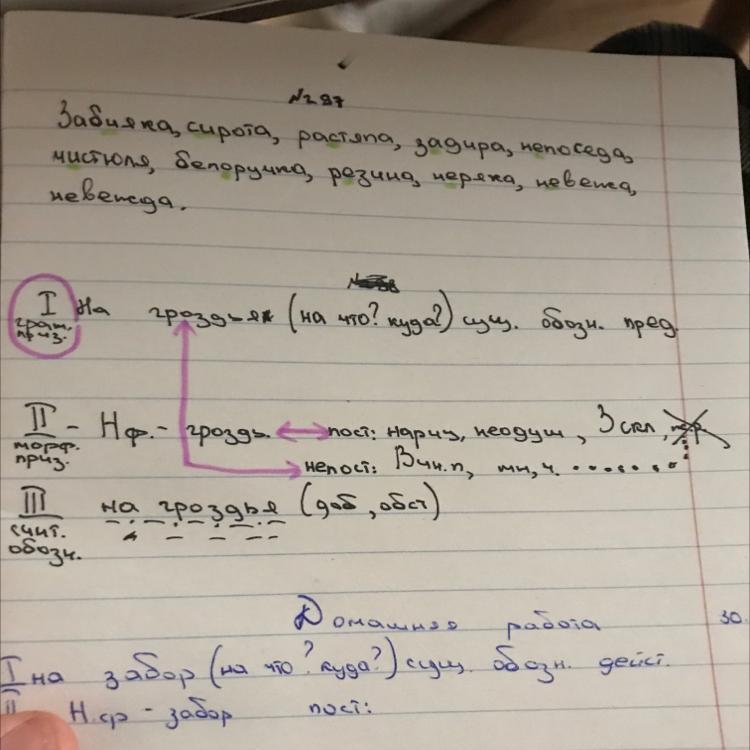 №297
Забияка, сирота, растяпа, задира, непоседа,
чистюля, белоручка, резина, неряха, невежа,
невежда.
I На гроздья (на что? куда?) сущ. обозн. пред.
грам.
приз.
II - Н.ф.- гроздь. пост: нариц, неодуш, 3 скл,
морф.
приз. непост: Вин.п, мн,ч.
III на гроздья (доб, обст)
синт.
обозн.
Домашняя работа 30.
I на забор (на что? куда?) сущ. обозн. дейст.
II Н.ф - забор пост: